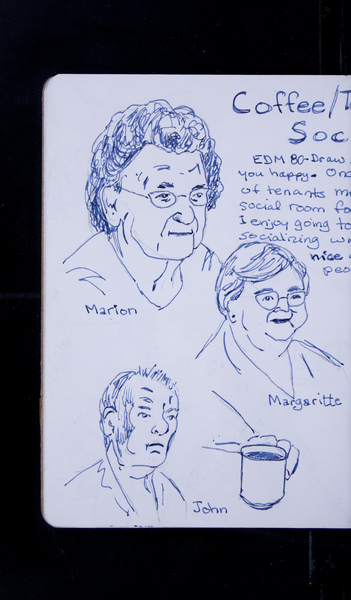 Coffee/T
Soc
EDM 80-Draw
you happy. Onc
of tenants m
social room fo
I enjoy going to
socializing w
nice
peo
Marion
Margaritte
John